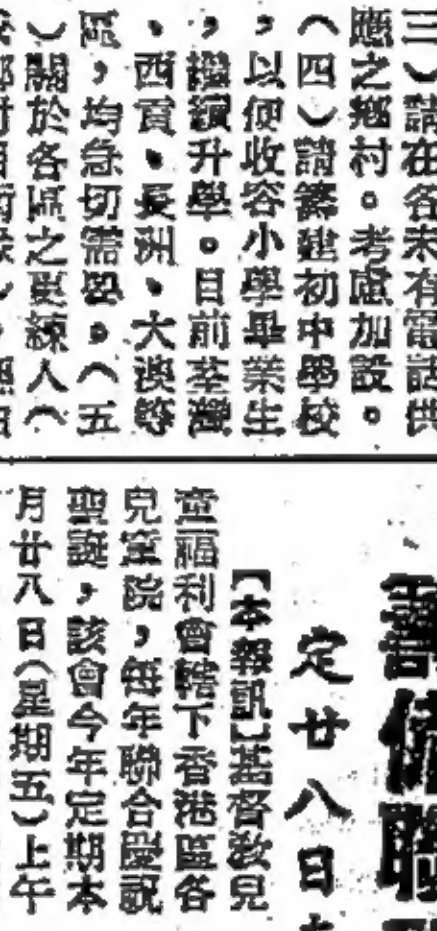 三︶請在各未有電話供
應之鄉村。考慮加設。
︵四︶請籌建初中學校
，以便收容小學畢業生
，繼續升學。目前荃灣
、西貢、長洲、大澳等
區，均急切需要。︵五
︶關於各區之更練人︵
定廿八日
【本報訊】基督教兒
童福利會轄下香港區各
兒童院，每年聯合慶祝
聖誕，該會今年定期本
月廿八日︵星期五︶上午